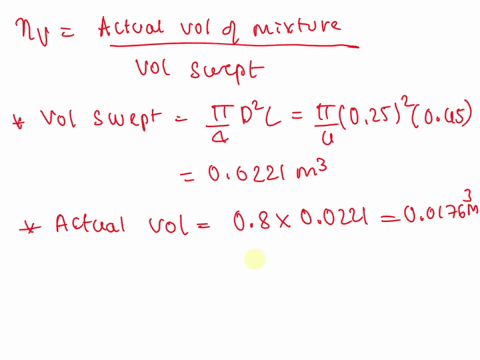 ηv = Actual vol of mixture / vol swept
* Vol swept = π/4 D²L = π/4 (0.25)² (0.45)
= 0.0221 m³
* Actual vol = 0.8 × 0.0221 = 0.0176 m³